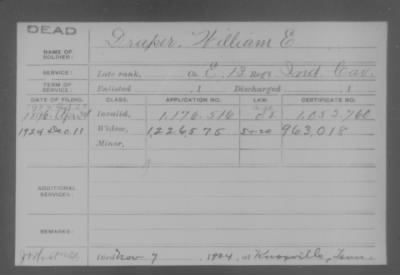 DEAD
NAME OF SOLDIER: Draper, William E.
SERVICE: Late rank, Co. E, 13 Reg't Ind. Cav.
TERM OF SERVICE: Enlisted , 1 Discharged , 1
DATE OF FILING. CLASS. APPLICATION NO. LAW. CERTIFICATE NO.
Invalid, 1,176,516 1,053,760
1924 Dec 11 Widow, 1,226,575 963,018
Minor,
ADDITIONAL SERVICES:
REMARKS:
Died Nov 7, 1924, at Knoxville, Tenn.